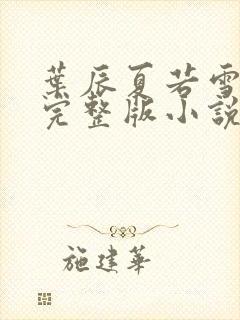 葉辰夏若雪
完整版小說
施建華